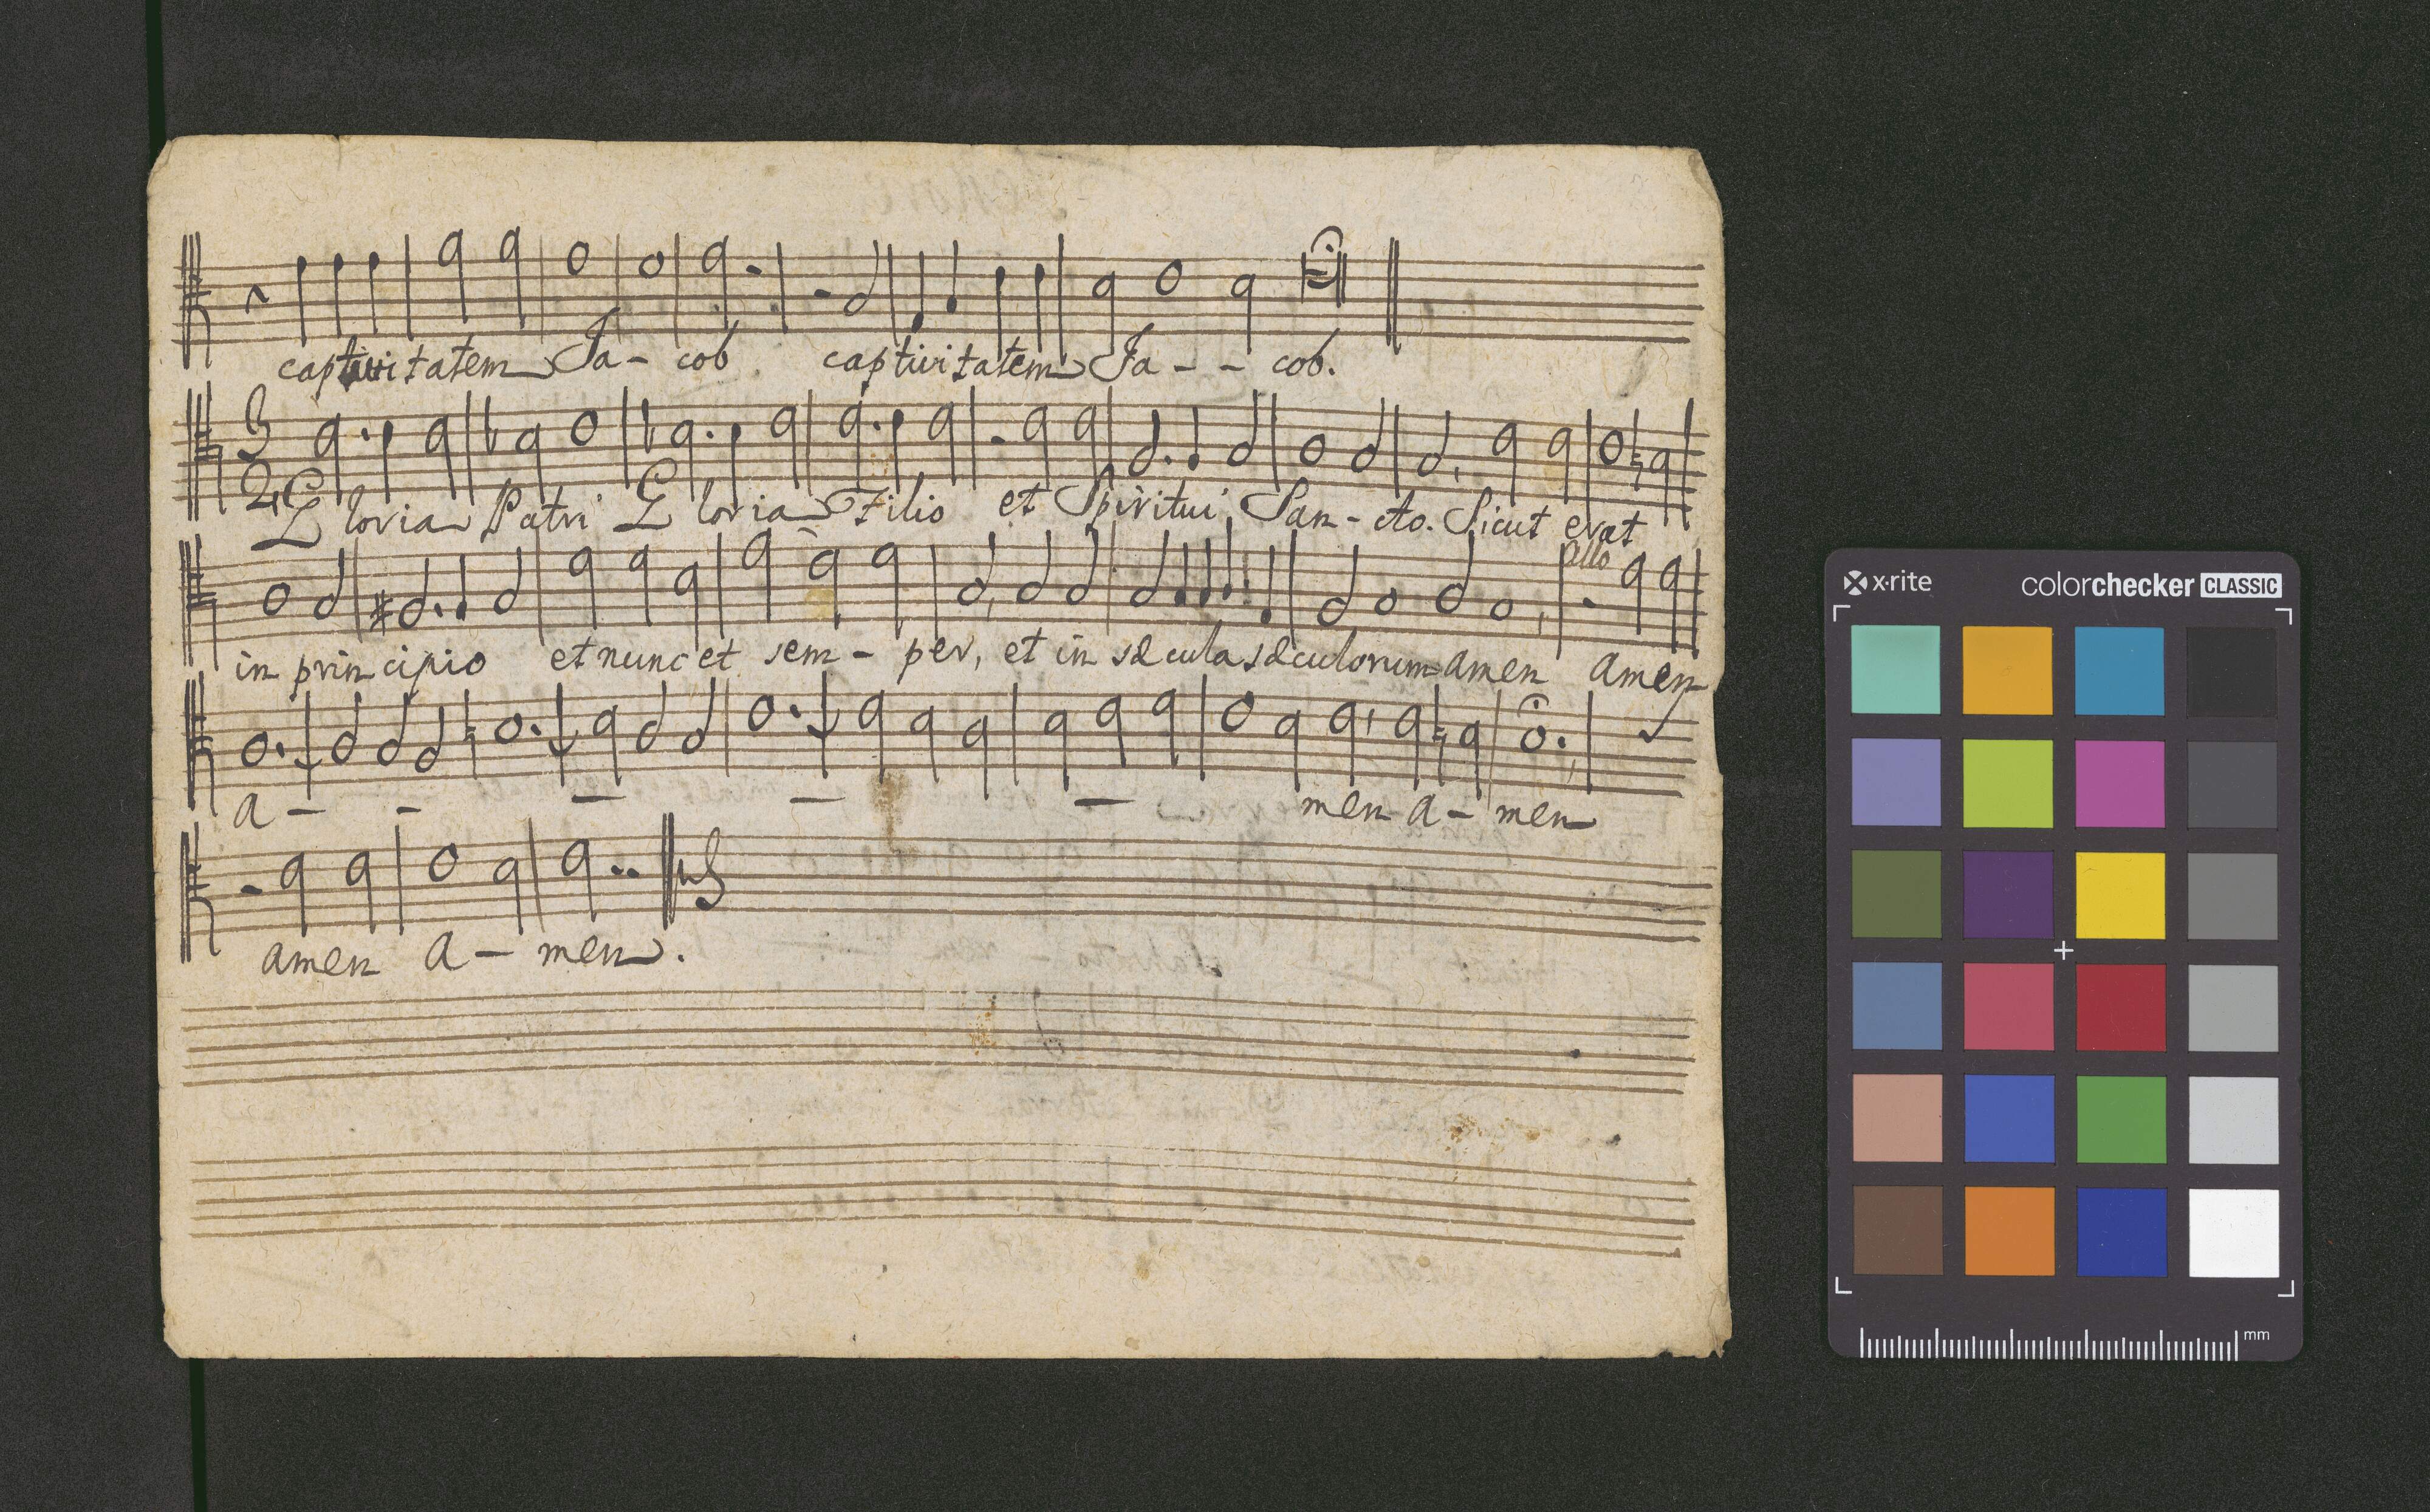 captivitatem Ja - cob captivitatem Ja - - cob.
3
2
Gloria Patri Gloria Filio et Spiritui San - cto. Sicut erat
allo
in principio et nunc et sem - per, et in sæcula sæculorum amen amen
a - - - - - men a - men
amen a - men.
x-rite colorchecker CLASSIC
mm